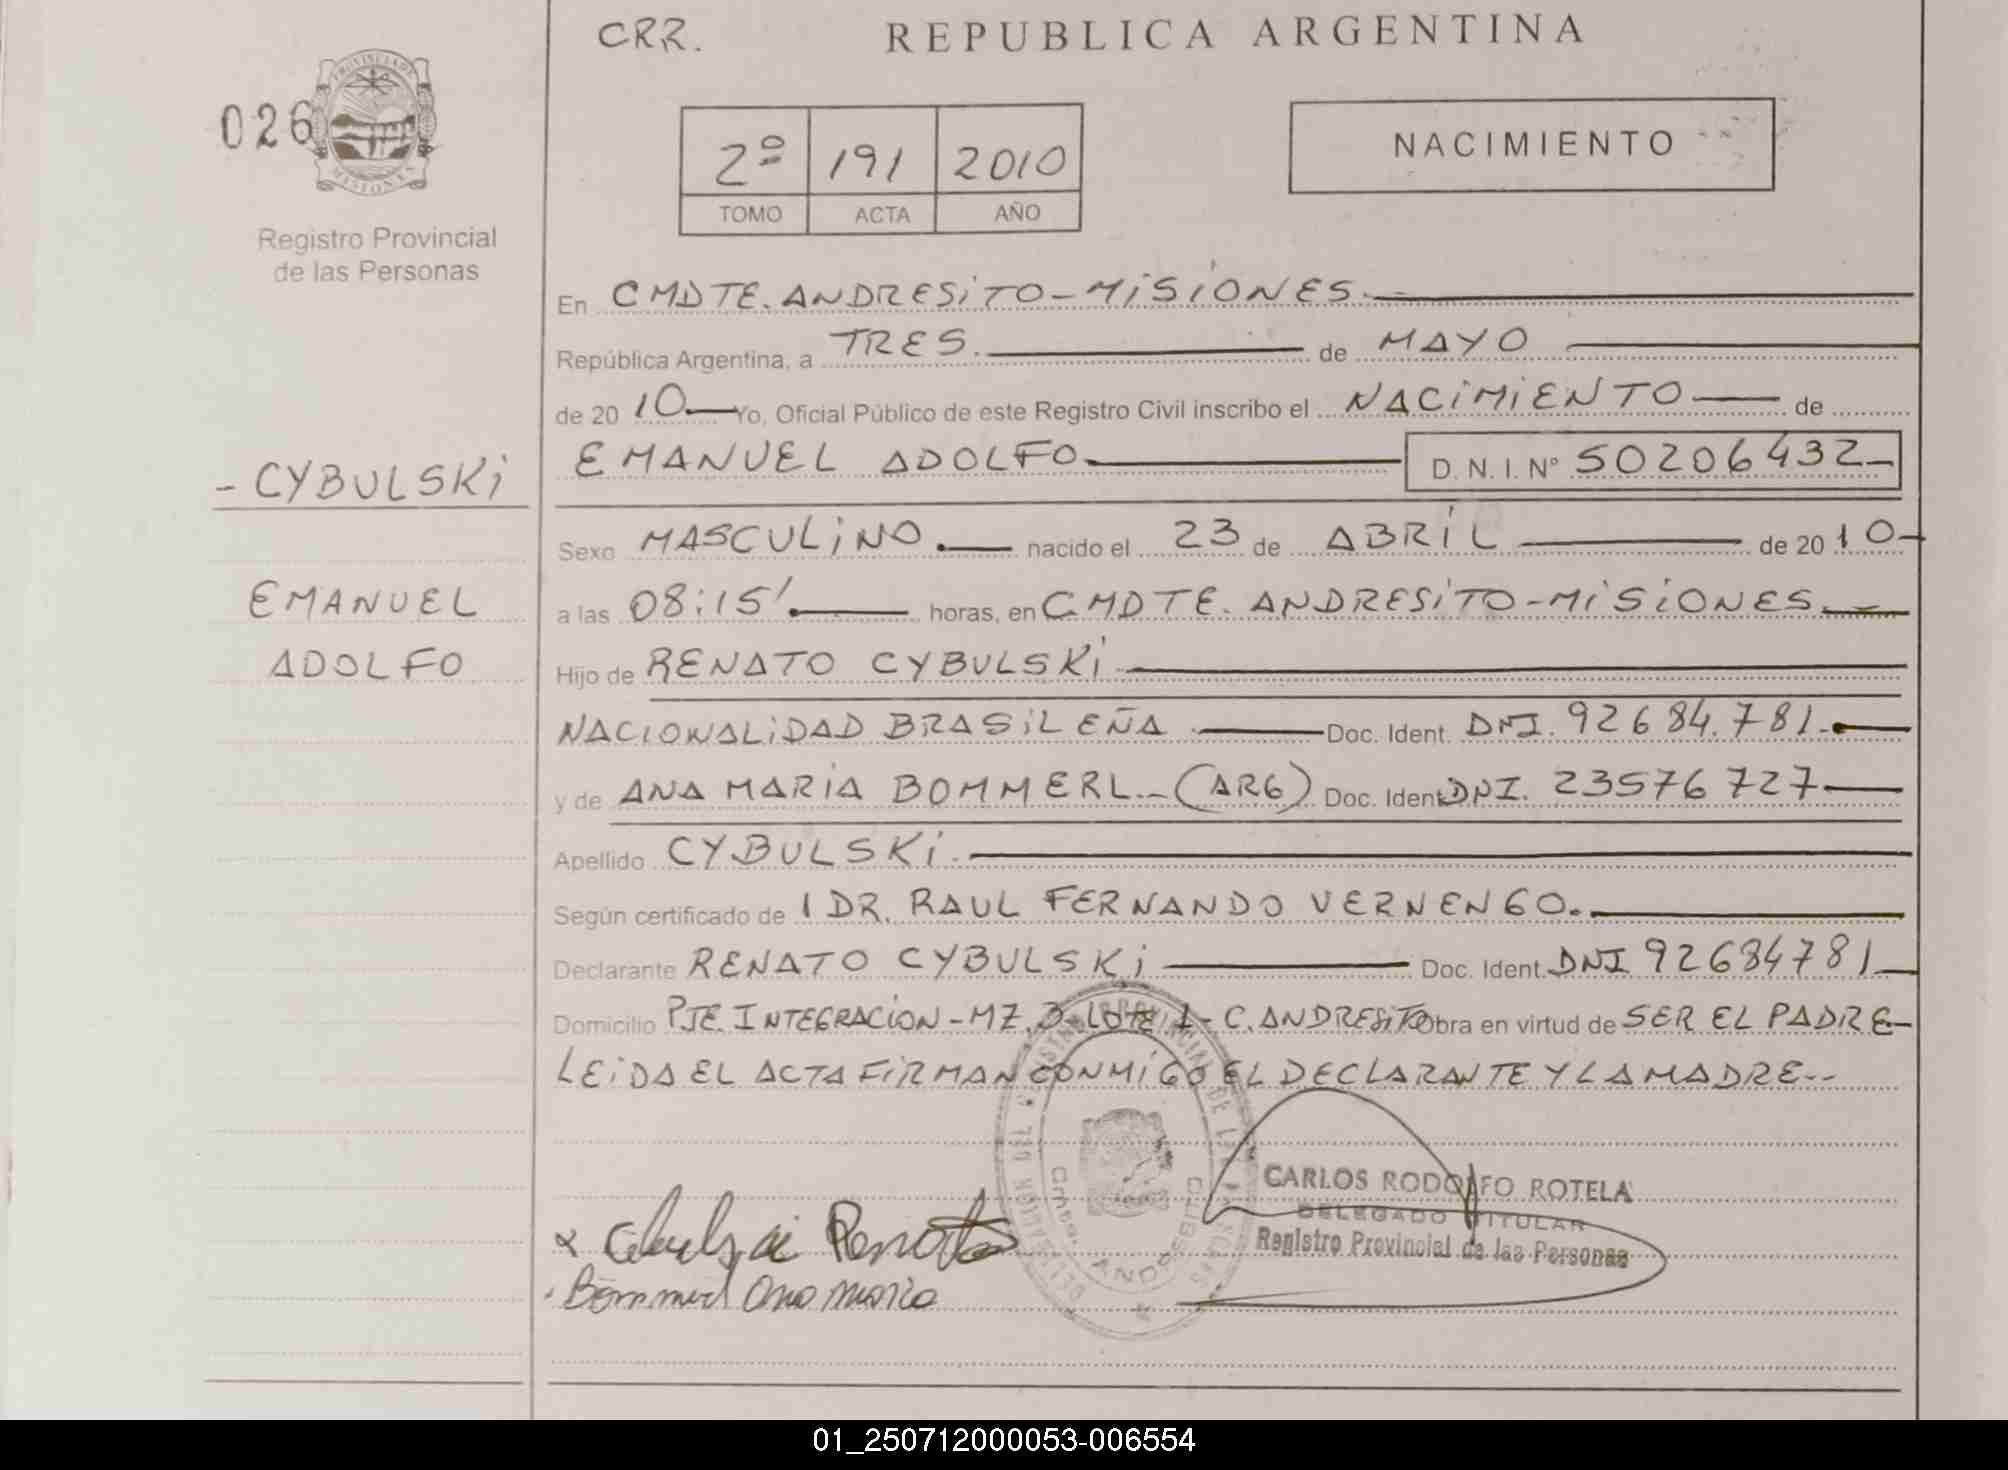 CRR.
REPUBLICA ARGENTINA
026
PROVINCIA DE
MISIONES
Registro Provincial
de las Personas
2º 191 2010
TOMO ACTA AÑO
NACIMIENTO
En CMDTE. ANDRESiTO-MiSiONES.
República Argentina, a TRES. de MAYO
de 20 10. Yo, Oficial Público de este Registro Civil inscribo el NACiMiENTO de
EMANUEL ADOLFO D. N. I. Nº 50206432
- CYBULSKi
EMANUEL
ADOLFO
Sexo MASCULiNO. nacido el 23 de ABRiL de 2010
a las 08:15' horas, en CMDTE. ANDRESiTO-MiSiONES.
Hijo de RENATO CYBULSKi
NACIONALiDAD BRASiLEÑA Doc. Ident. DNI. 92684.781.
y de ANA MARiA BOMMERL.- (ARG) Doc. Ident DNI. 23576727
Apellido CYBULSKi.
Según certificado de 1 DR. RAUL FERNANDO VERNENGO.
Declarante RENATO CYBULSKi Doc. Ident. DNI 92684781
Domicilio PJE. INTEGRACiON-MZ.3-LOTE 1-C.ANDRESiTO Obra en virtud de SER EL PADRE-
LEiDA EL ACTA FiRMAN CONMiGO EL DECLARANTE Y LA MADRE--
CARLOS RODOLFO ROTELA
DELEGADO TITULAR
Registro Provincial de las Personas
DELEGACION DEL REGISTRO PROVINCIAL DE LAS PERSONAS
Cmte. ANDRESITO
x Cybulski Renato
Bommerl Ana maria
01_250712000053-006554